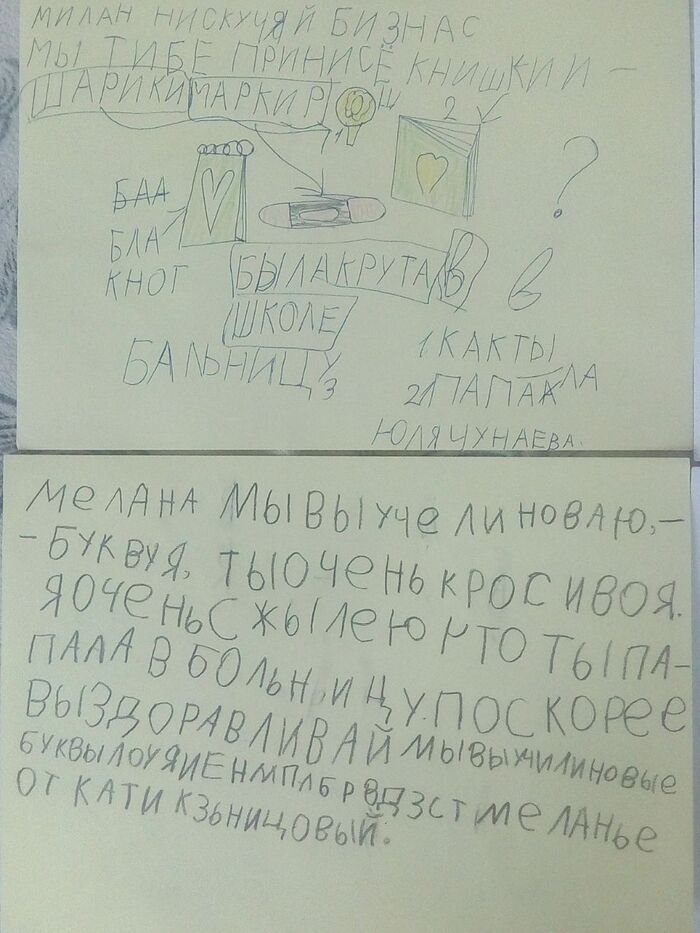 МИЛАН НИСКУЧЯЙ БИЗНАС
МЫ ТИБЕ ПРИНИСЁ КНИШКИ И –
ШАРИКИ МАРКИР Ю Ш
1 2
?
БАА
БЛА
КНОГ
БЫЛА КРУТА В в
ШКОЛЕ
БАЛЬНИЦУ 3
1 КАКТЫ
2 ПАПАА ЛА
ЮЛЯ ЧУНАЕВА.
МЕЛАНА МЫ ВЫУЧЕЛИ НОВАЮ, –
– БУКВУ Я, ТЫ ОЧЕНЬ КРОСИВОЯ.
Я ОЧЕНЬ СЖЫЛЕЮ ЧТО ТЫ ПА–
ПААА В БОЛЬНИЦУ. ПОСКОРЕЕ
ВЫЗДОРАВЛИВАЙ МЫ ВЫУЧИЛИ НОВЫЕ
БУКВЫ ЛОУЯИЕНМПЛБРВДЗСТ МЕЛАНЬЕ
ОТ КАТИ КЗЬНИЦОВЫЙ.